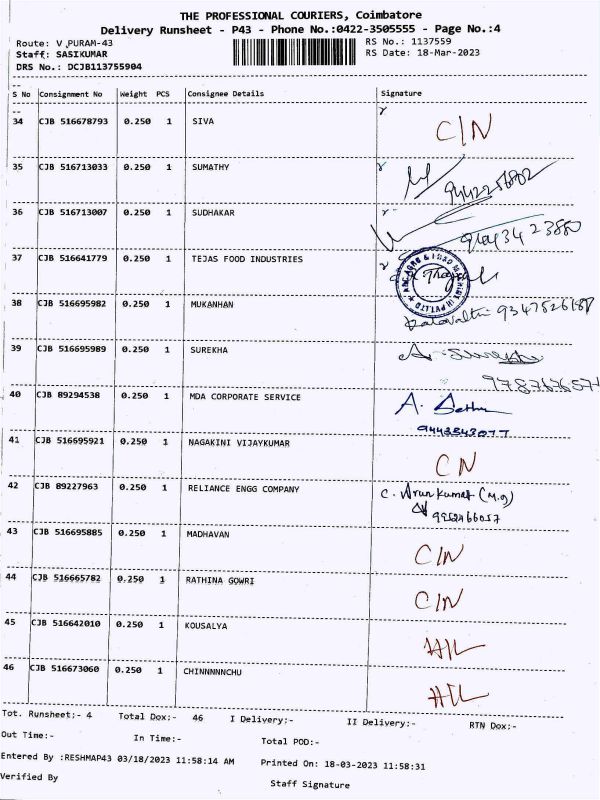 THE PROFESSIONAL COURIERS, Coimbatore
Delivery Runsheet - P43 - Phone No.:0422-3505555 - Page No.:4
Route: V.PURAM-43
RS No.: 1137559
Staff: SASIKUMAR
RS Date: 18-Mar-2023
DRS No.: DCJB113755904
S No Consignment No Weight PCS Consignee Details Signature
34 CJB 516678793 0.250 1 SIVA C/N
35 CJB 516713033 0.250 1 SUMATHY
36 CJB 516713007 0.250 1 SUDHAKAR
37 CJB 516641779 0.250 1 TEJAS FOOD INDUSTRIES
38 CJB 516695982 0.250 1 MUKANHAN
39 CJB 516695989 0.250 1 SUREKHA
40 CJB 89294538 0.250 1 MDA CORPORATE SERVICE A.
9443543077
41 CJB 516695921 0.250 1 NAGAKINI VIJAYKUMAR CN
42 CJB 89227963 0.250 1 RELIANCE ENGG COMPANY C. Arun kumar
43 CJB 516695885 0.250 1 MADHAVAN C/N
44 CJB 516665782 0.250 1 RATHINA GOWRI C/N
45 CJB 516642010 0.250 1 KOUSALYA
46 CJB 516673060 0.250 1 CHINNNNNCHU
Tot. Runsheet;- 4 Total Dox:- 46 I Delivery:- II Delivery:- RTN Dox:-
Out Time:- In Time:- Total POD:-
Entered By :RESHMAP43 03/18/2023 11:58:14 AM Printed On: 18-03-2023 11:58:31
Verified By Staff Signature